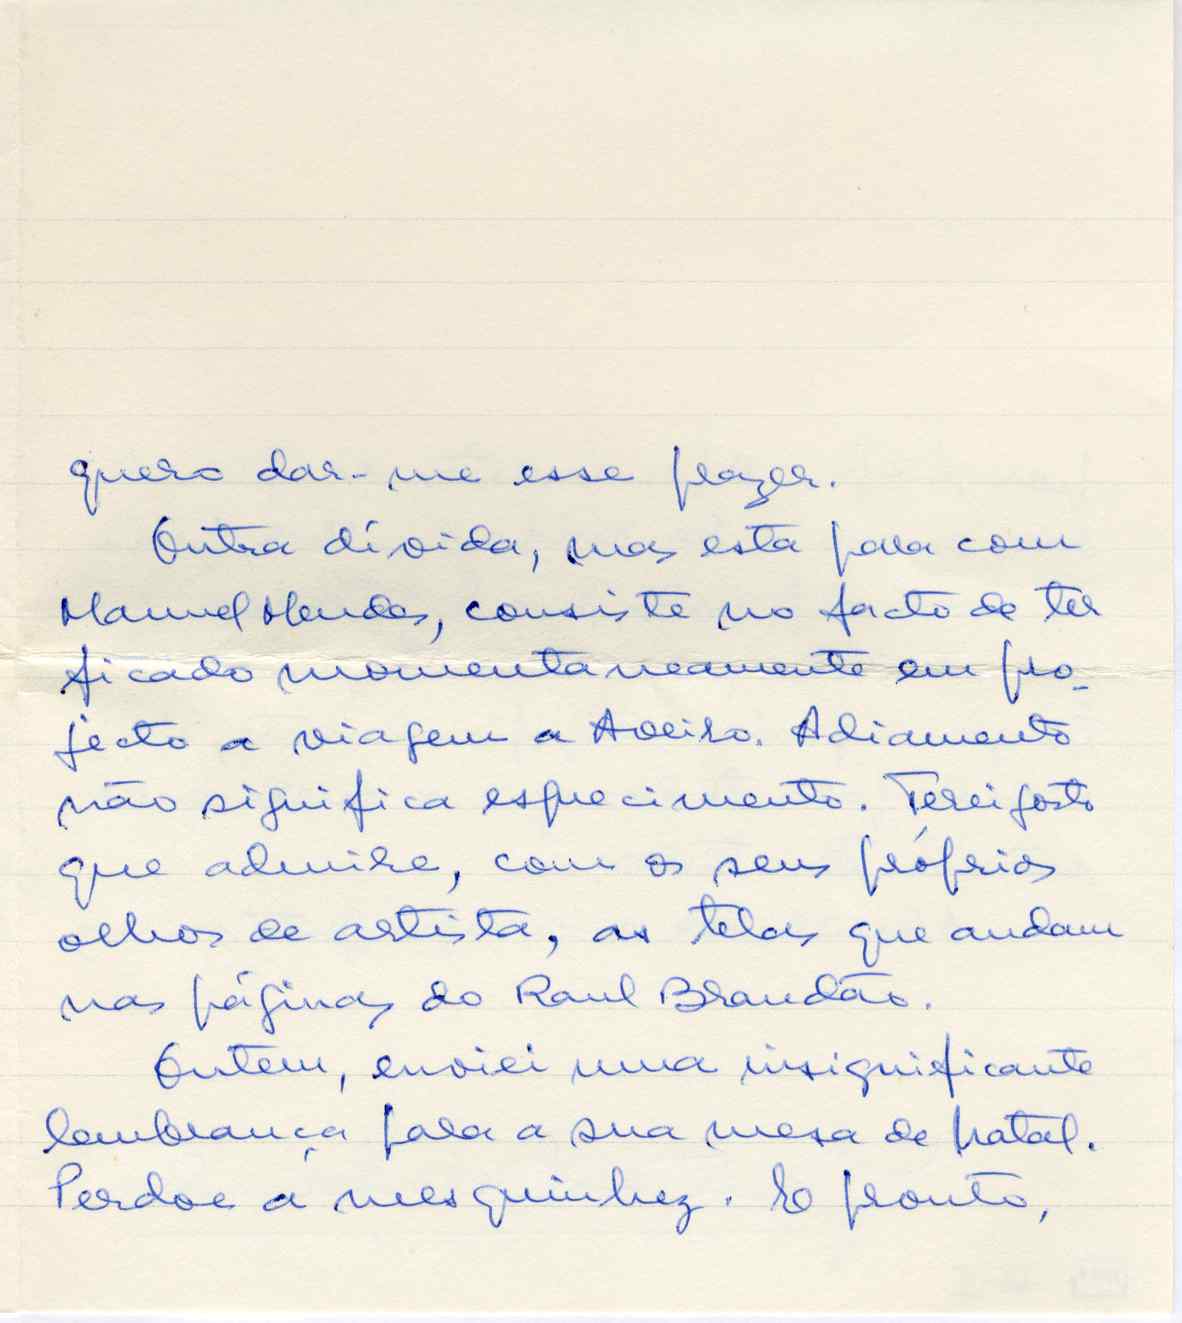 quero dar-me esse prazer.
Outra dívida, mas esta para com
Manuel Mendes, consiste no facto de ter
ficado momentaneamente em pro-
jecto a viagem a Aveiro. Adiamento
não significa esquecimento. Terei gosto
que admire, com os seus próprios
olhos de artista, as telas que andam
nas páginas do Raul Brandão.
Ontem, enviei uma insignificante
lembrança para a sua mesa de Natal.
Perdoe a mesquinhez. E pronto,